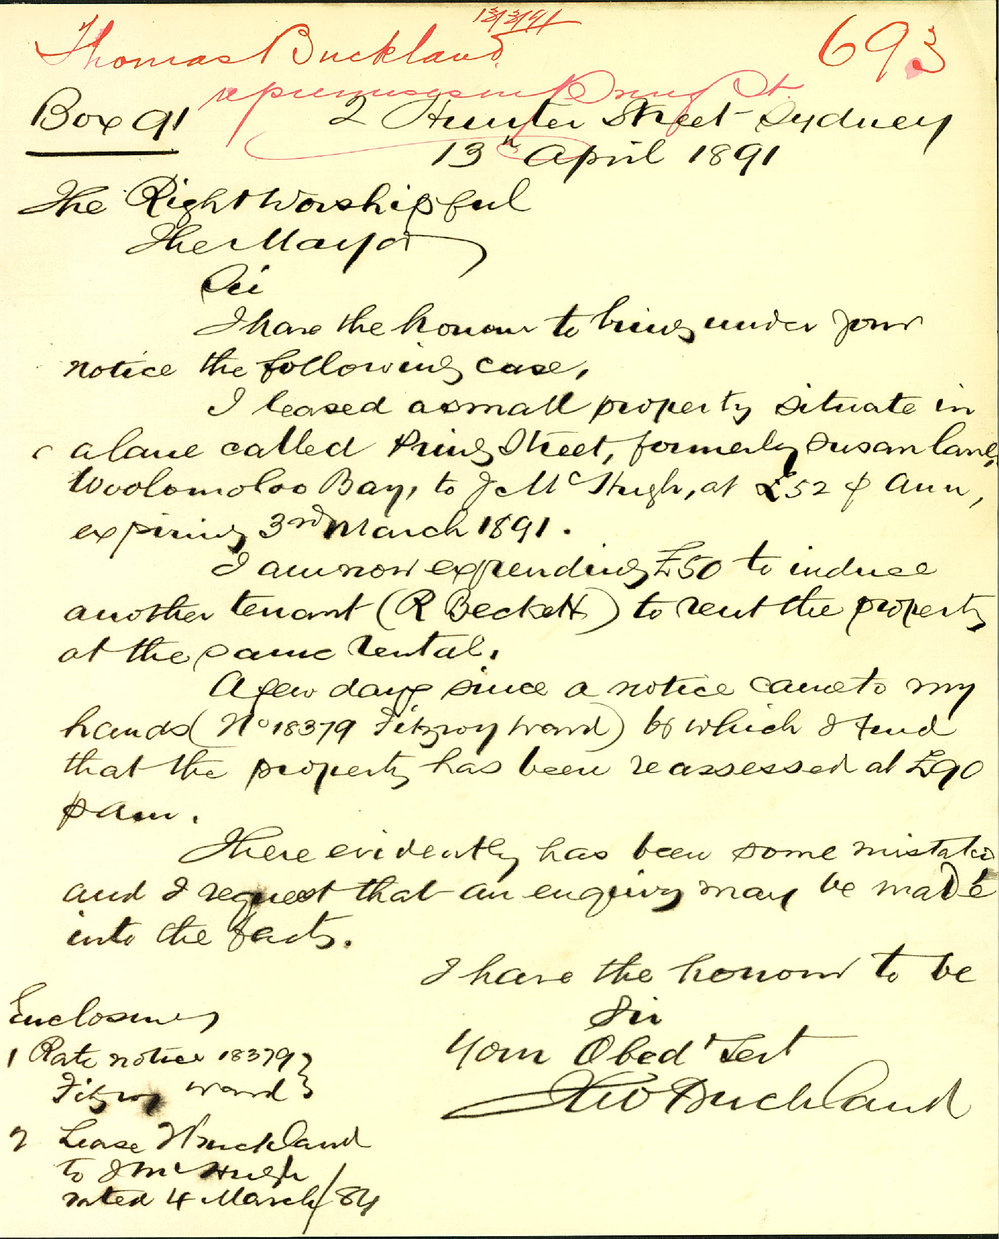 Thomas Buckland 693
re premises in Pring St.
Box 91 2 Hunter Street Sydney
13th April 1891
The Right Worshipful
The Mayor
Sir
I have the honour to bring under your
notice the following case,
I leased a small property situate in
a lane called Pring Street, formerly Susan lane,
Woolomoloo Bay, to J McHugh, at £52 p Ann,
expiring 3rd March 1891.
I am now expending £50 to induce
another tenant (R Beckett) to rent the property
at the same rental.
A few days since a notice came to my
hands (No 18379 Fitzroy Ward) by which I find
that the property has been reassessed at £90
p ann.
There evidently has been some mistake
and I request that an enquiry may be made
into the facts.
I have the honour to be
Sir
Your Obedt Servt
Thos Buckland
Enclosures
1 Rate notice 18379
Fitzroy Ward
2 Lease T Buckland
to J McHugh
dated 4 March/84